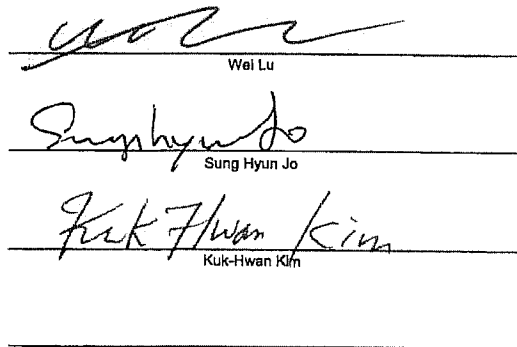 Wei Lu
Sunghyun Jo
Sung Hyun Jo
Kuk Hwan Kim
Kuk-Hwan Kim